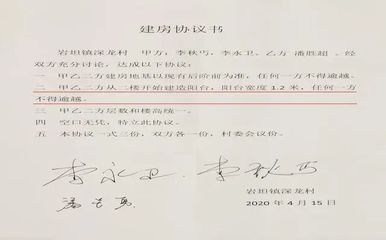 建房协议书
岩坦镇深龙村 甲方:李秋丐、李永卫、乙方 潘胜超 。经
双方充分讨论,达成以下协议:
一 甲乙二方建房地基以现有后阶前为准,任何一方不得逾越。
二 甲乙二方从二楼开始建造阳台,阳台宽度 1.2 米,任何一方
不得逾越。
三 甲乙二方层数和楼高统一。
四 空口无凭,特立此协议。
五 本协议一式三份,双方各一份,村委会议份。
李永卫 李秋丐
岩坦镇深龙村
2020 年 4 月 15 日